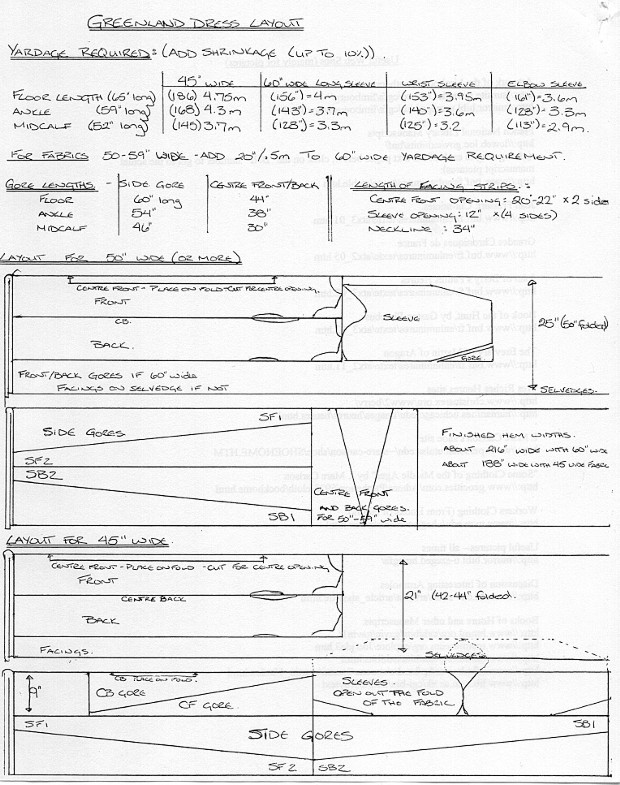 GREENLAND DRESS LAYOUT
YARDAGE REQUIRED: (ADD SHRINKAGE (UP TO 10%))
45" WIDE 60" WIDE LONG SLEEVE WRIST SLEEVE ELBOW SLEEVE
FLOOR LENGTH (65" long) (186) 4.75m (156") = 4m (153") = 3.95m (161") = 3.6m
ANKLE (59" long) (168) 4.3m (143") = 3.7m (140") = 3.6m (128") = 3.3m
MIDCALF (52" long) (145) 3.7m (128") = 3.3m (125") = 3.2 (113") = 2.9m.
FOR FABRICS 50-59" WIDE - ADD 20"/.5m TO 60" WIDE YARDAGE REQUIREMENT.
GORE LENGTHS. - SIDE GORE CENTRE FRONT/BACK LENGTH OF FACING STRIPS.:
FLOOR 60" long 44" CENTRE FRONT OPENING: 20"-22" x 2 sides
ANKLE 54" 38" SLEEVE OPENING: 12" x (4 SIDES)
MIDCALF 46" 30" NECKLINE : 34"
LAYOUT FOR 50" WIDE (OR MORE)
CENTRE FRONT - PLACE ON FOLD - CUT FOR CENTRE OPENING
FRONT
SLEEVE
CB.
25" (50" folded)
BACK.
GORE
FRONT/BACK GORES IF 60" wide
FACINGS ON SELVEDGE IF NOT
SELVEDGES.
SF1
SIDE GORES
FINISHED HEM WIDTHS.
SF2
ABOUT 216" WIDE WITH 60" WIDE
SB2
ABOUT 188" WIDE WITH 45" WIDE FABRIC
CENTRE FRONT
AND BACK GORES.
SB1
FOR 50"-59" wide
LAYOUT FOR 45" WIDE.
CENTRE FRONT - PLACE ON FOLD - CUT FOR CENTRE OPENING
FRONT
CENTRE BACK
21" (42-44" folded.
BACK
FACINGS.
SELVEDGES
CB PLACE ON FOLD.
SLEEVES -
9"
CB GORE
OPEN OUT THE FOLD
CF GORE.
OF THE FABRIC.
SF1
SB1
SIDE GORES
SF2 SB2